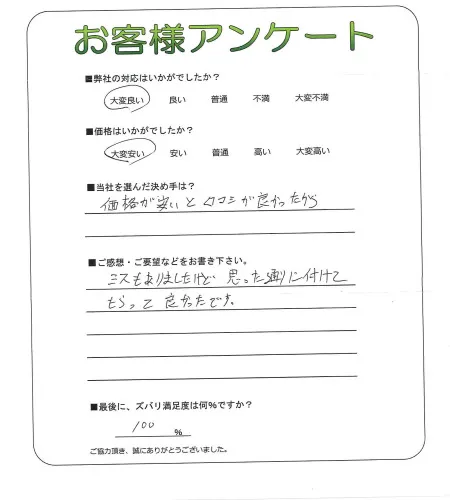 お客様アンケート
■弊社の対応はいかがでしたか？
大変良い 良い 普通 不満 大変不満
■価格はいかがでしたか？
大変安い 安い 普通 高い 大変高い
■当社を選んだ決め手は？
価格が安いと口コミが良かったから
■ご感想・ご要望などをお書き下さい。
ミスもありましたけど 思った通りに付けて
もらって 良かったです。
■最後に、ズバリ満足度は何%ですか？
100 %
ご協力頂き、誠にありがとうございました。